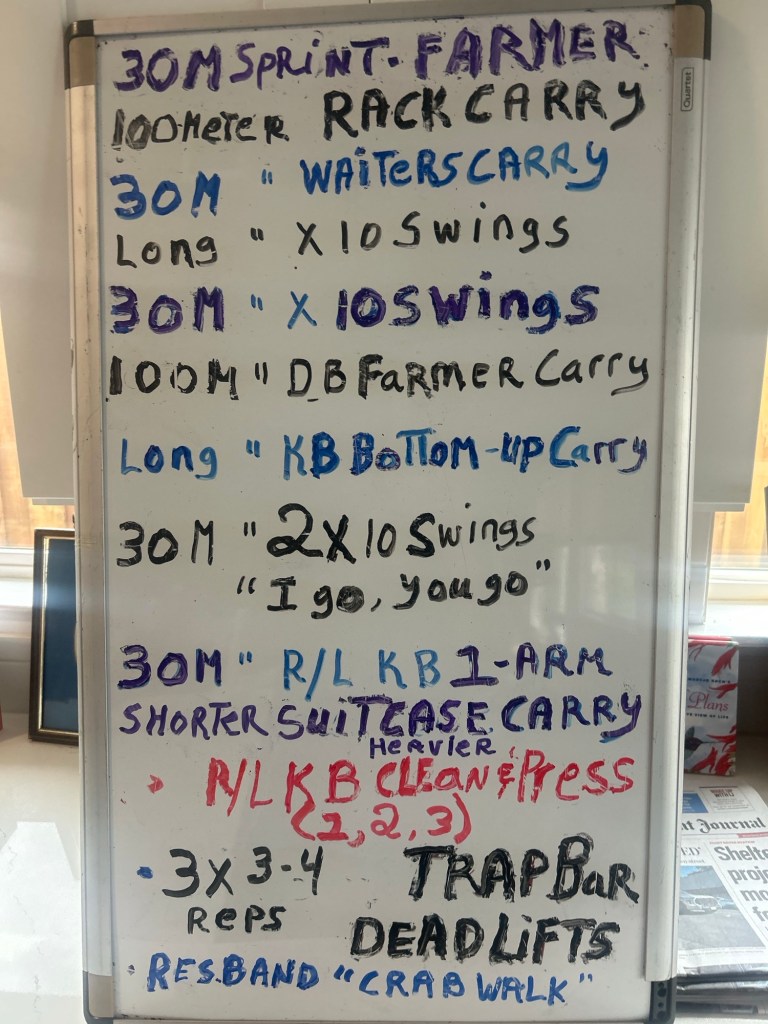 30M SPRINT. FARMER
100METER RACK CARRY
30M " WAITERS CARRY
Long " X 10 Swings
30M " X 10 Swings
100M " DB FARMER Carry
Long " KB BOTTOM-UP Carry
30M " 2X10 Swings
"I go, you go"
30M " R/L KB 1-ARM
SHORTER SUITCASE CARRY
HEAVIER
R/L KB CLEAN & PRESS
(1, 2, 3)
• 3X 3-4 TRAP BAR
REPS DEADLIFTS
• RES.BAND "CRAB WALK"
Quartet
Plans
VIEW OF LIFE
Journal
Shelte